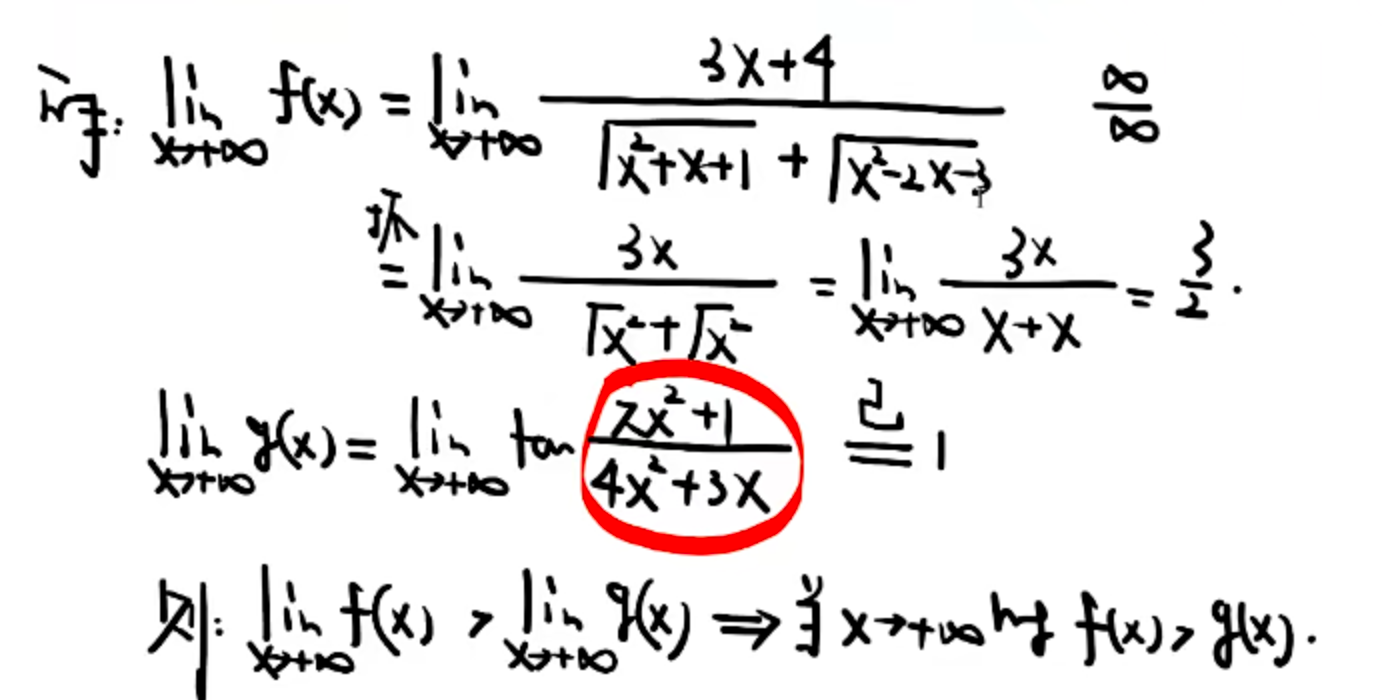 : lim_{x→+∞} f(x) = lim_{x→+∞} (3x+4)/(√(x²+x+1) + √(x²-2x-3)) ∞/∞
抓= lim_{x→+∞} 3x/(√x²+√x²) = lim_{x→+∞} 3x/(x+x) = 3/2.
lim_{x→+∞} g(x) = lim_{x→+∞} tan (πx²+1)/(4x²+3x) = 1
则: lim_{x→+∞} f(x) > lim_{x→+∞} g(x) ⇒ 当 x→+∞时 f(x) > g(x).